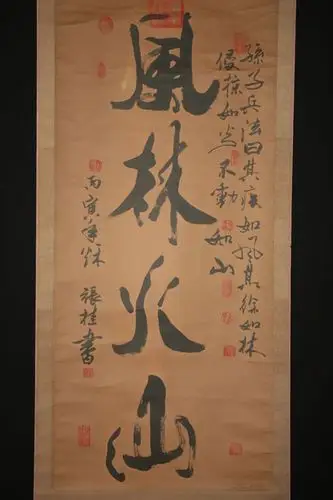 孫子兵法曰其疾如風其徐如林
侵掠如火不動如山
風林火山
丙寅年秋
張桂書